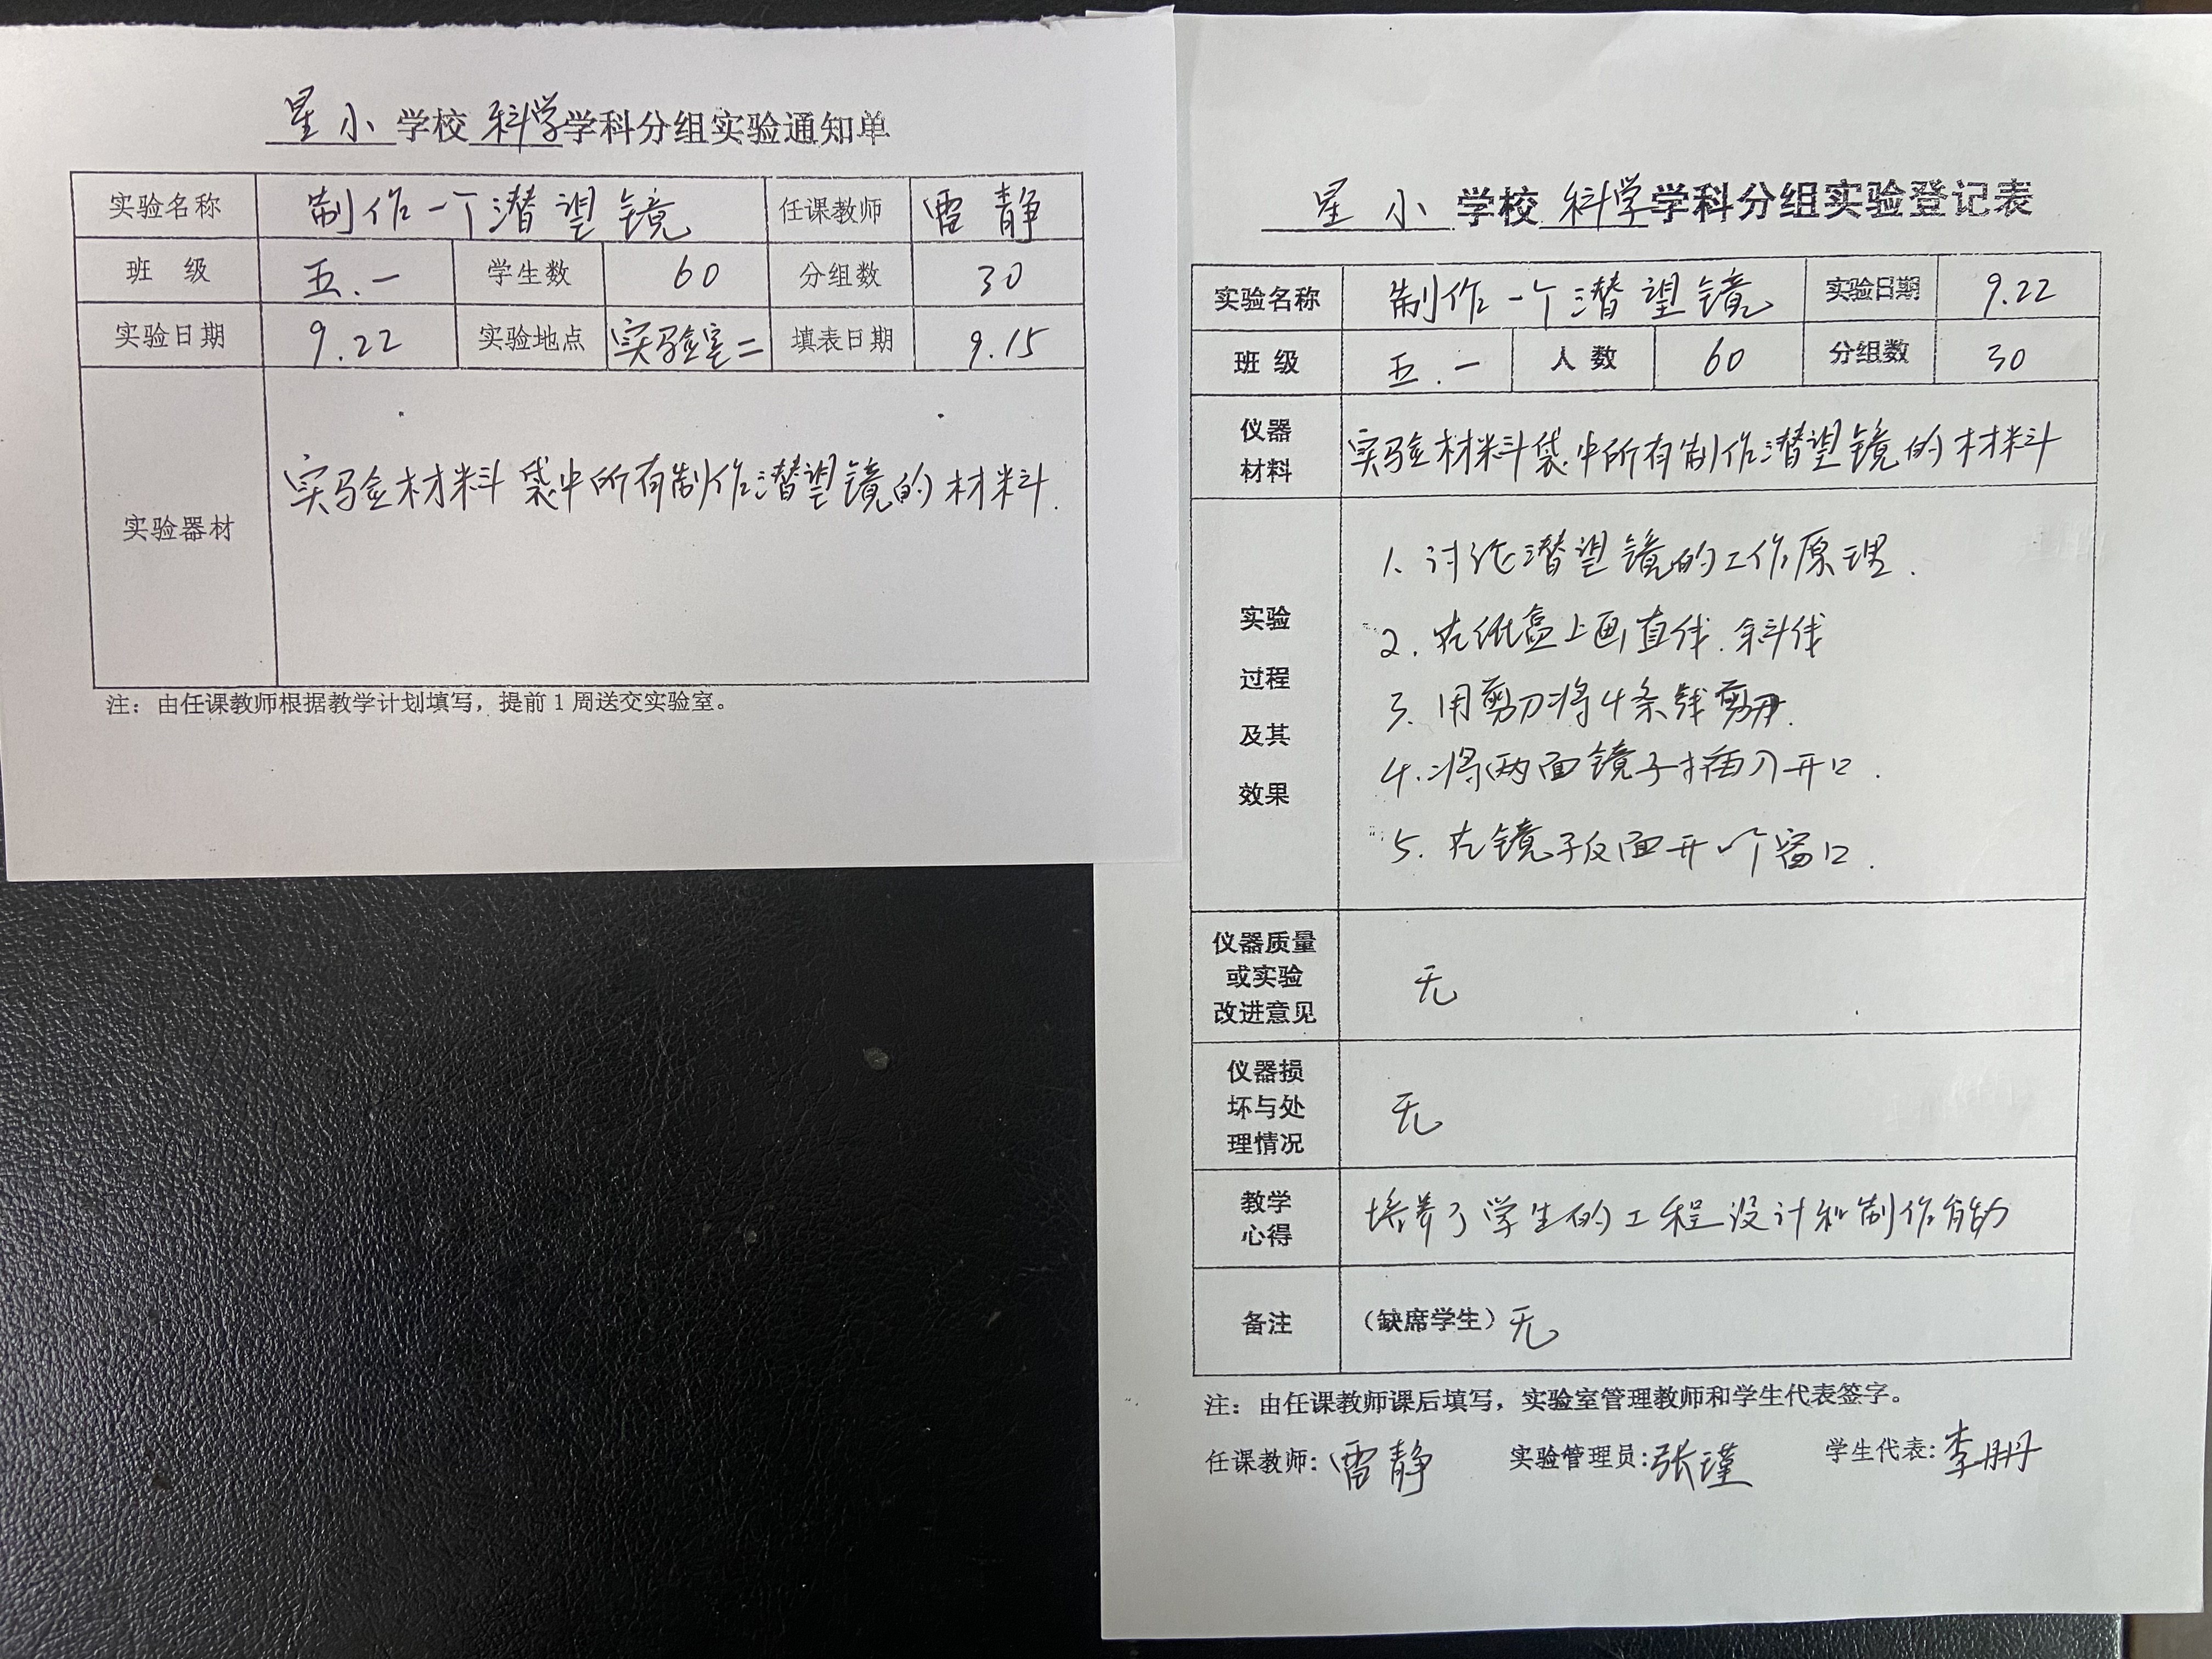 星小学校科学学科分组实验通知单
实验名称 制作一个潜望镜 任课教师 雷静
班 级 五.一 学生数 60 分组数 30
实验日期 9.22 实验地点 实验室二 填表日期 9.15
实验器材 实验材料袋中所有制作潜望镜的材料.
注：由任课教师根据教学计划填写，提前1周送交实验室。
星小学校科学学科分组实验登记表
实验名称 制作一个潜望镜 实验日期 9.22
班 级 五.一 人 数 60 分组数 30
仪器
材料
实验材料袋中所有制作潜望镜的材料
实验
过程
及其
效果
1. 讨论潜望镜的工作原理.
2. 在纸盒上画直线.斜线
3. 用剪刀将4条线剪开.
4. 将两面镜子插入开口.
5. 在镜子反面开一个窗口.
仪器质量
或实验
改进意见
无
仪器损
坏与处
理情况
无
教学
心得
培养了学生的工程设计和制作能力
备注 （缺席学生）无
注：由任课教师课后填写，实验室管理教师和学生代表签字。
任课教师：雷静 实验管理员：张瑾 学生代表：李丹